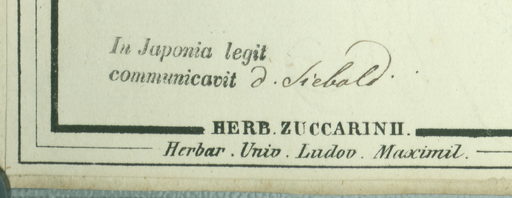 In Japonia legit
communicavit d. Siebold.
HERB. ZUCCARINII.
Herbar. Univ. Ludov. Maximil.